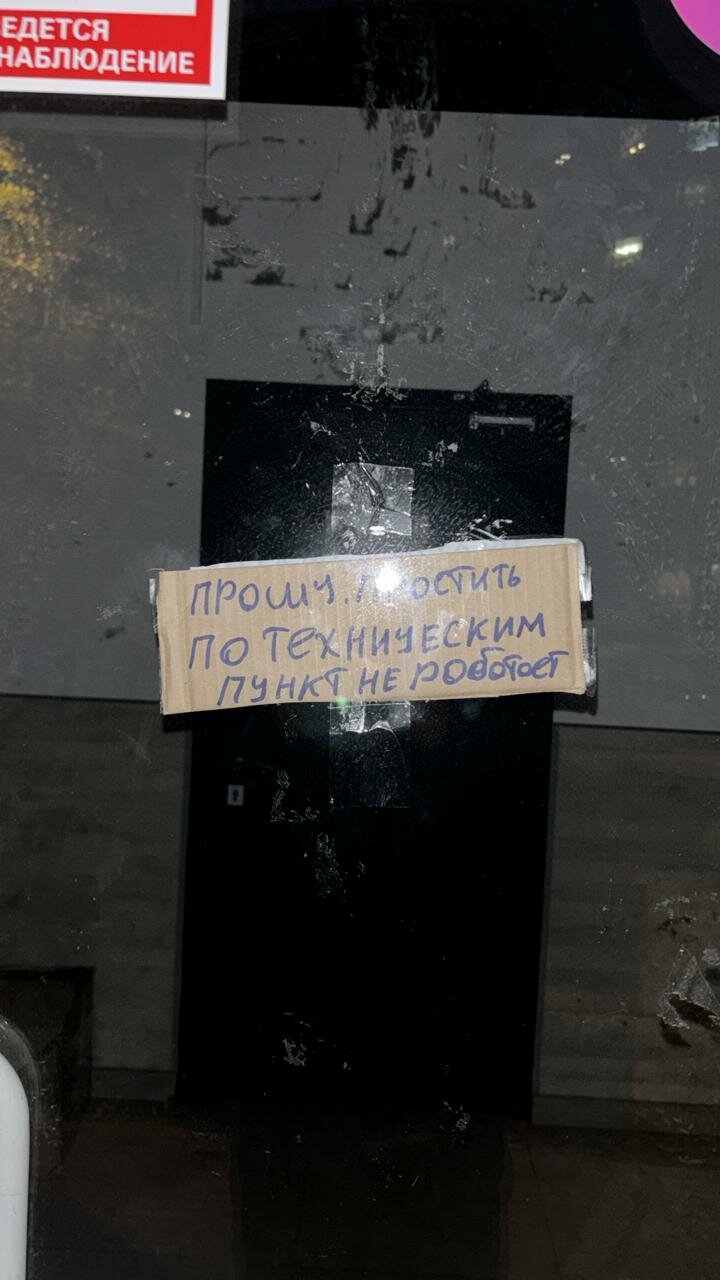 ЕДЕТСЯ
НАБЛЮДЕНИЕ
ПРОШУ. ПРОСТИТЬ
ПО ТЕХНИЧЕСКИМ
ПУНКТ НЕ РОБОТОЕТ